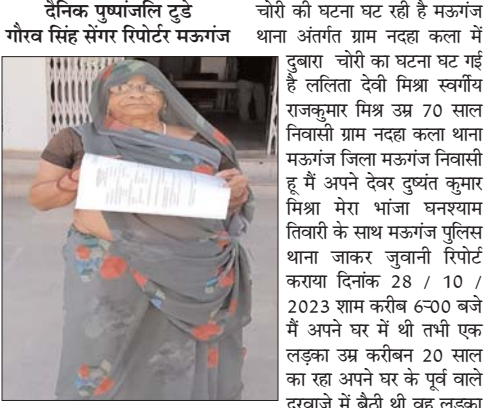 दैनिक पुष्पांजलि टुडे
गौरव सिंह सेंगर रिपोर्टर मऊगंज
चोरी की घटना घट रही है मऊगंज
थाना अंतर्गत ग्राम नदहा कला में
दुबारा चोरी का घटना घट गई
है ललिता देवी मिश्रा स्वर्गीय
राजकुमार मिश्र उम्र 70 साल
निवासी ग्राम नदहा कला थाना
मऊगंज जिला मऊगंज निवासी
हू मैं अपने देवर दुष्यंत कुमार
मिश्रा मेरा भांजा घनश्याम
तिवारी के साथ मऊगंज पुलिस
थाना जाकर जुवानी रिपोर्ट
कराया दिनांक 28 / 10 /
2023 शाम करीब 6-00 बजे
मैं अपने घर में थी तभी एक
लड़का उम्र करीबन 20 साल
का रहा अपने घर के पूर्व वाले
दरवाजे में बैठी थी वह लड़का